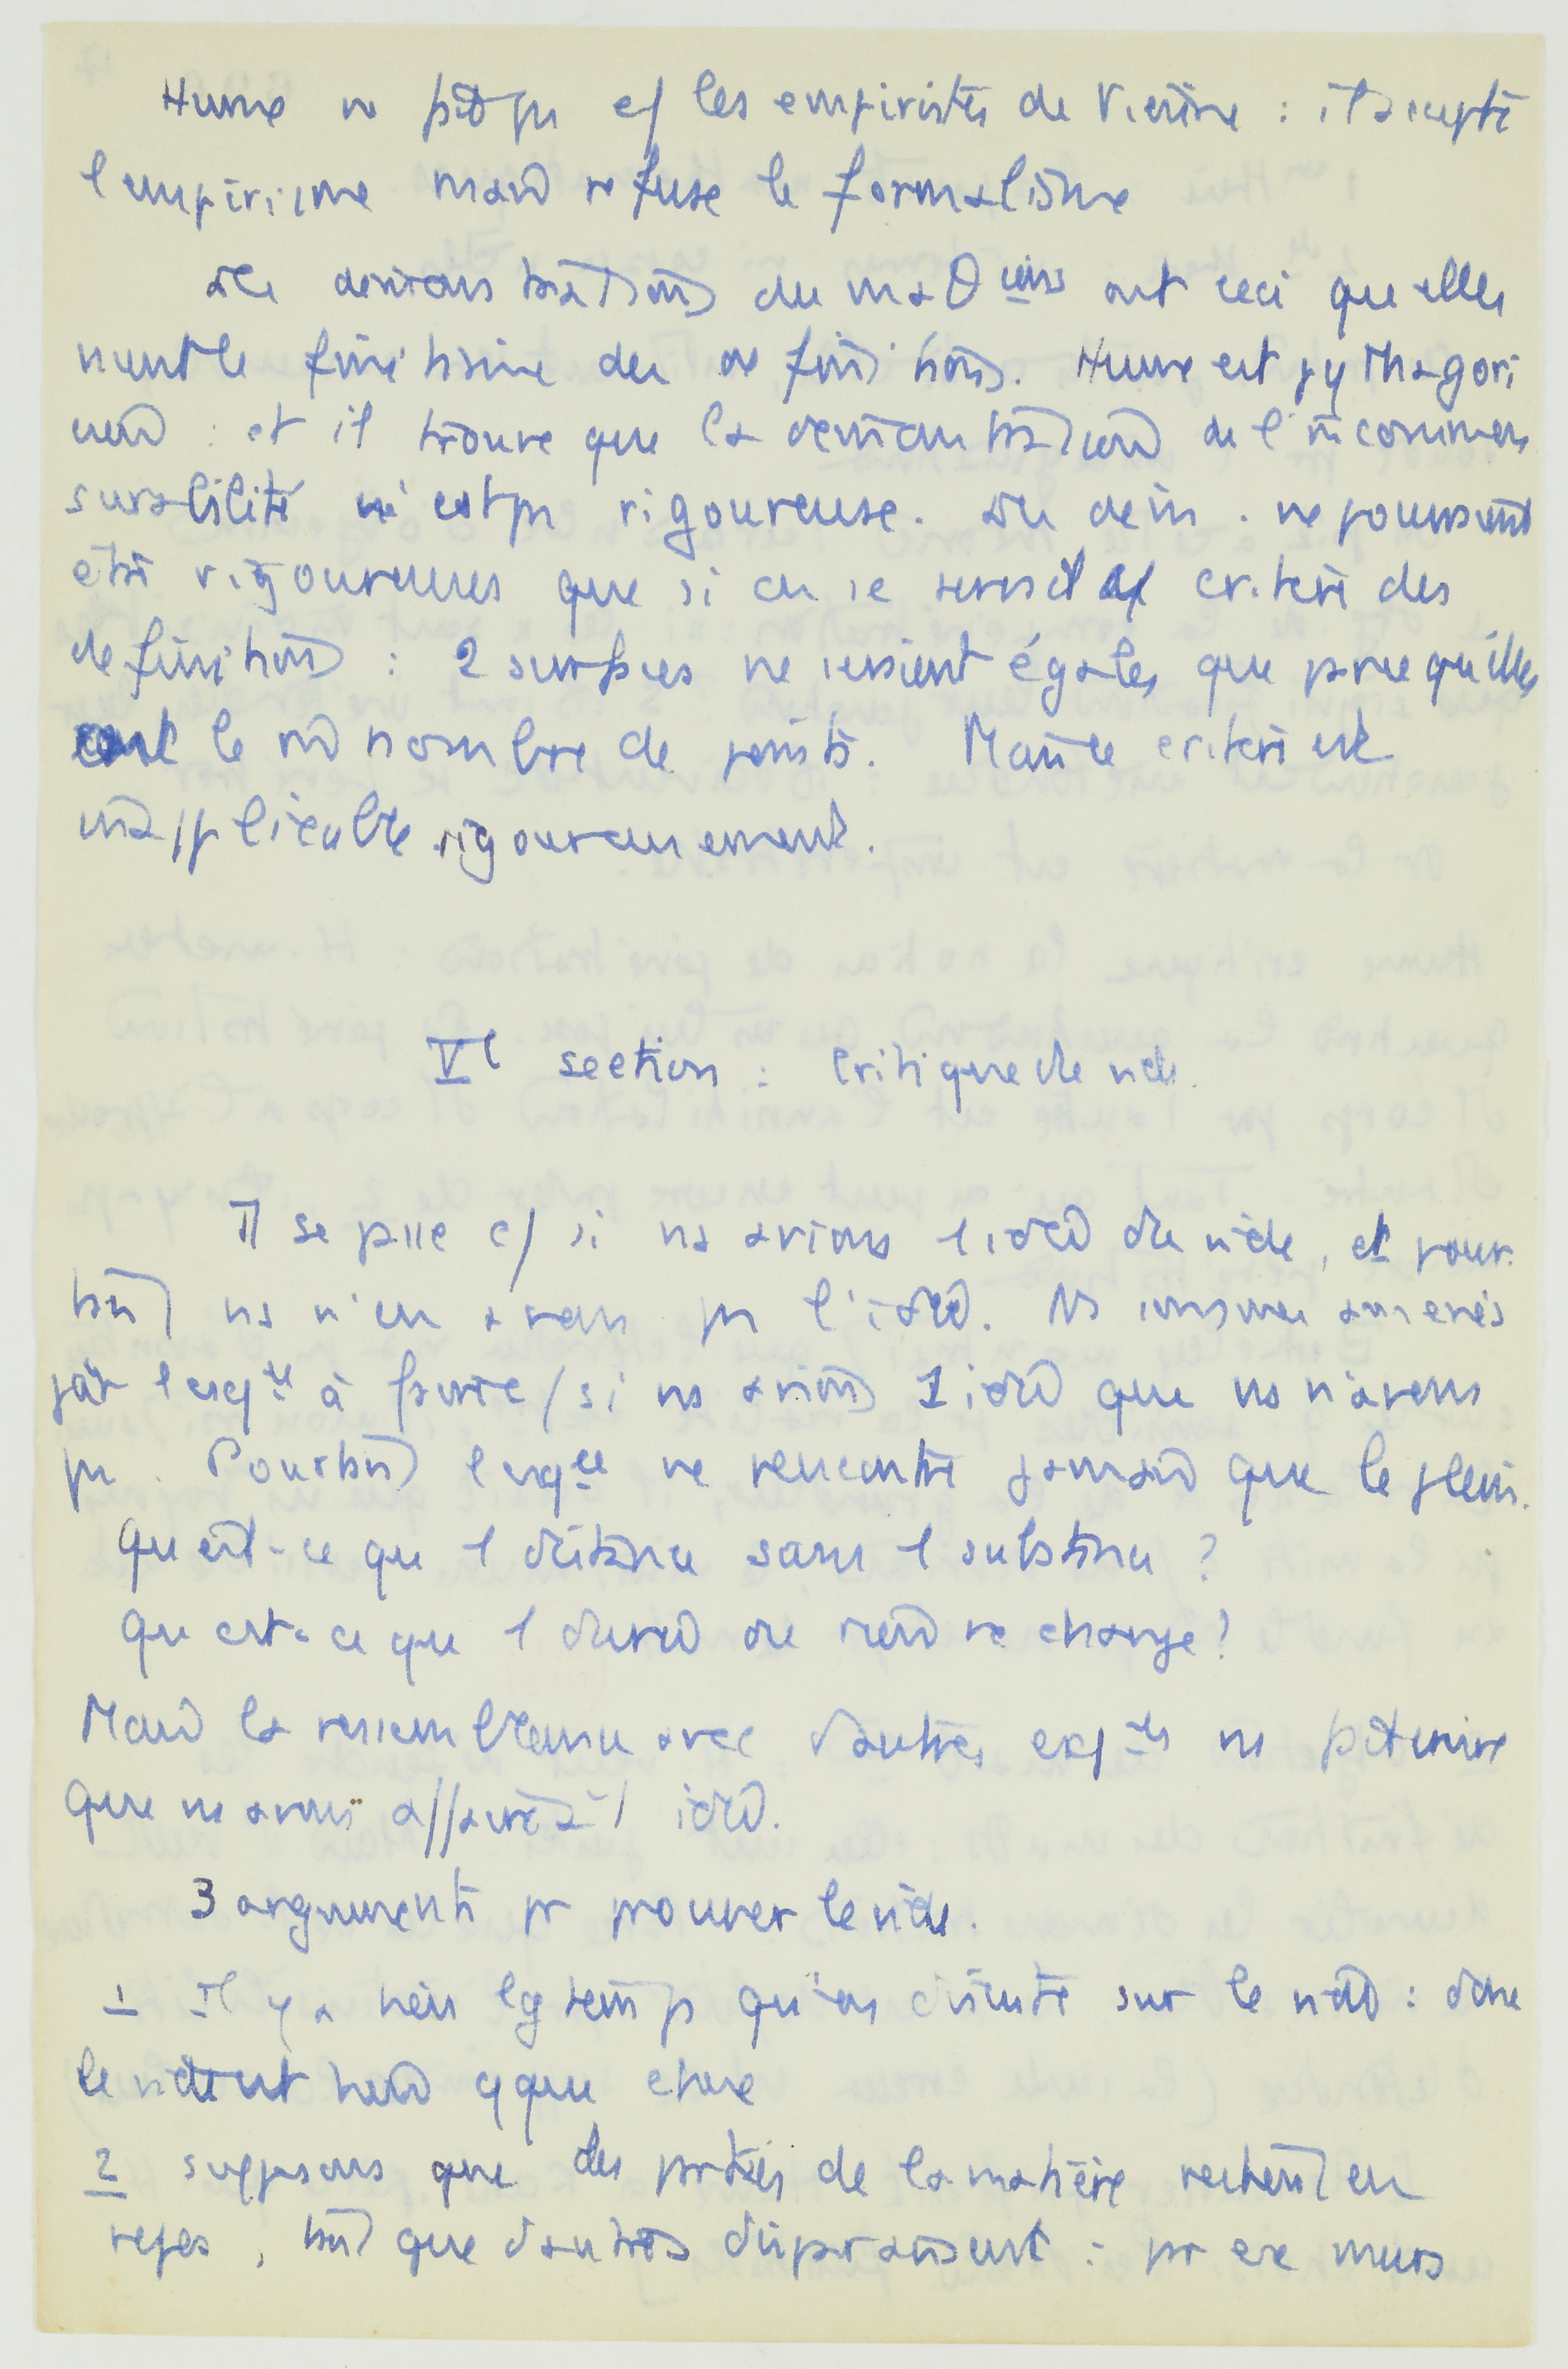 Hume ne pas c/ les empiristes de Vienne : il accepte
l'empirisme mais refuse le formalisme
démonstrations du maθ ont ceci qu'elles
n'ont le finitisme des définitions. Hume est pythagori
cien : et il trouve que la démonstration de l'incommen
surabilité n'est pas rigoureuse. dém. ne pourraient
être rigoureuses que si on se servait critère des
définitions : 2 surfaces ne seraient égales que parce qu'elles
ont le m nombre de points. Mais ce critère est
inapplicable rigoureusement.
Ve section : Critique de vide.
Il se passe c/ si ns avions 1 idée de vide, et pour
tant ns n'en avons pas l'idée. Ns sommes amenés
par l'expce à faire c/ si ns avions 1 idée que ns n'avons
pas. Pourtant l'expce ne rencontre jamais que le plein.
Qu'est-ce que 1 distance sans 1 substance ?
Qu'est-ce que 1 durée où rien ne change ?
Mais la ressemblance avec d'autres expces ns fait croire
que ns avons affaire à 1 idée.
3 arguments pr prouver le vide.
1 Il y a très lgtemps qu'on discute sur le vide : donc
le vide est bien qque chose
2 supposons que des parties de la matière restent en
repos, tant que d'autres disparaissent : pr ex murs